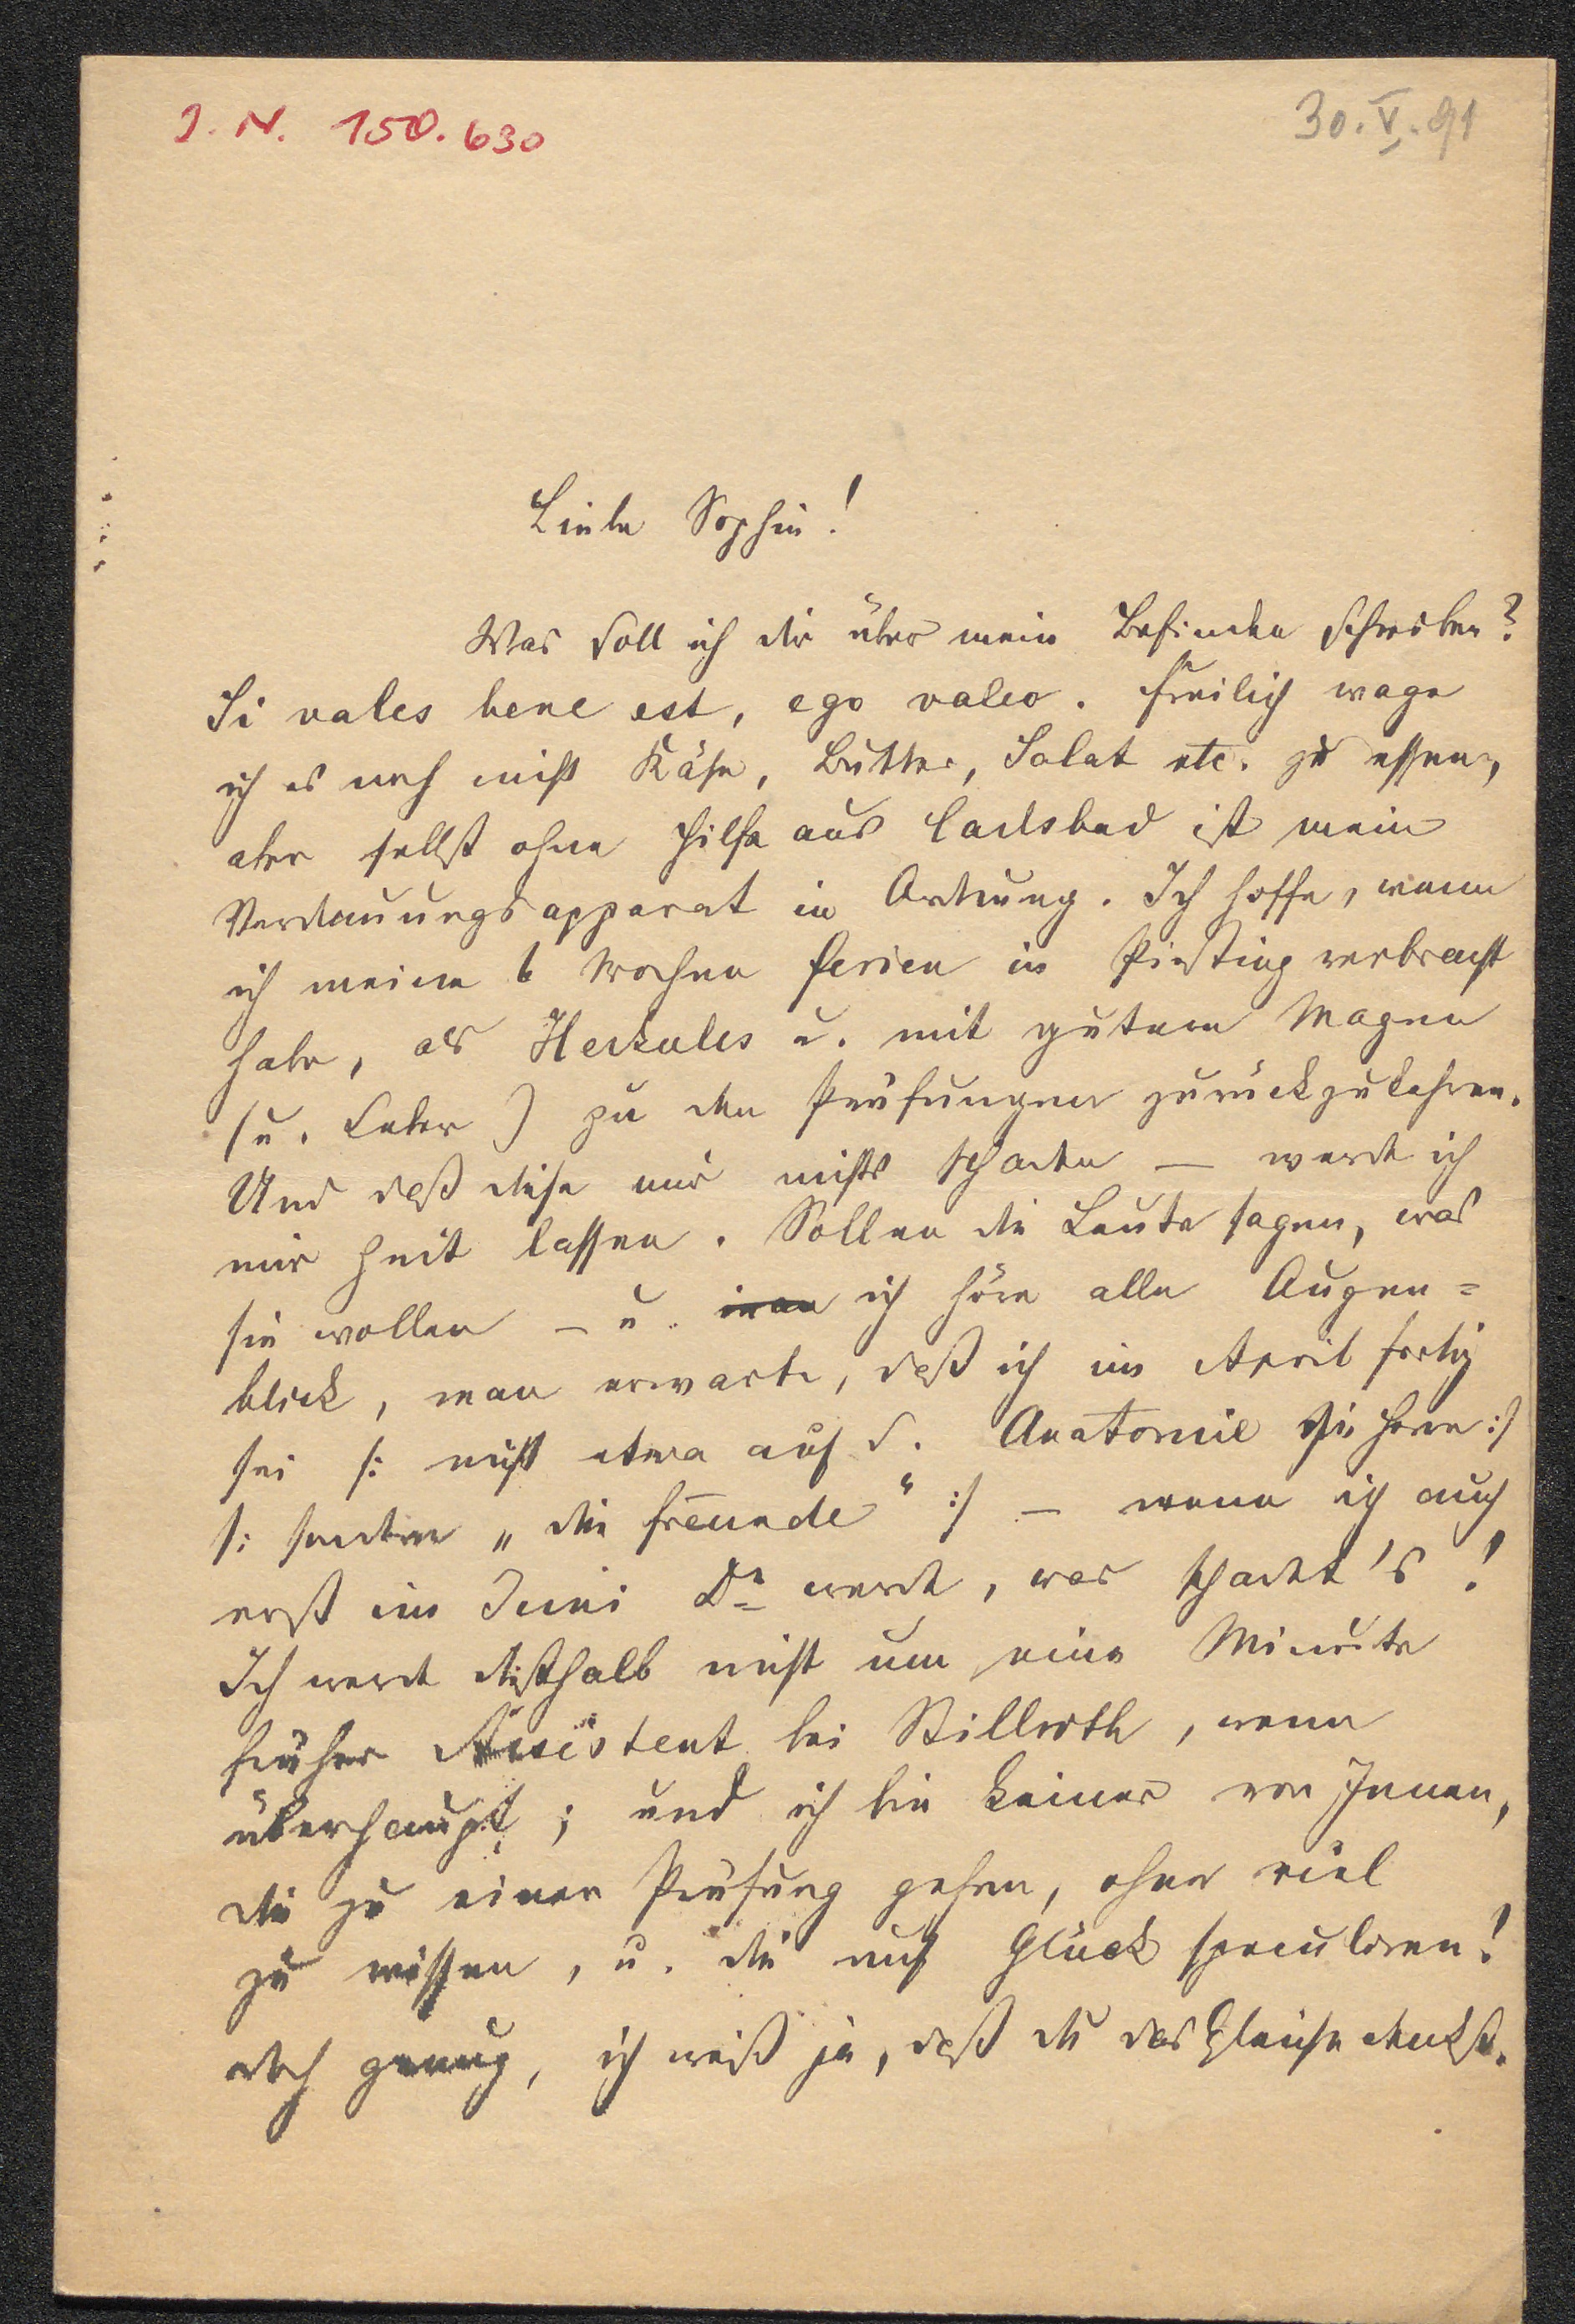 J. N. 150.630
30. V. 91
Liebe Sophie!
Was soll ich dir über mein Befinden schreiben?
Si vales bene est, ego valeo. Freilich wage
ich es noch nicht Käse, Butter, Salat etc. zu essen,
aber selbst ohne Hilfe aus Carlsbad ist mein
Verdauungsapparat in Ordnung. Ich hoffe, wenn
ich meine 6 Wochen Ferien in Piesting verbracht
habe, als Herkules u. mit gutem Magen
(u. Leber) zu den Prüfungen zurückzukehren.
Und daß diese mir nichts schaden – werde ich
mir Zeit lassen. Sollen die Leute sagen, was
sie wollen – u. man ich höre alle Augen=
blick, man erwarte, daß ich im April fertig
sei /: nicht etwa auf d. Anatomie :/
/: sondern „die Freunde" :/ – wenn ich auch
erst im Juni Dr werde, was schadet's!
Ich werde deßhalb nicht um eine Minute
früher Assistent bei Billroth, wenn
überhaupt; und ich bin keiner von Jenen,
die zu einer Prüfung gehen, ohne viel
zu wissen, u. die auf Glück speculiren!
doch genug, ich weiß ja, daß du das Gleiche denkst.